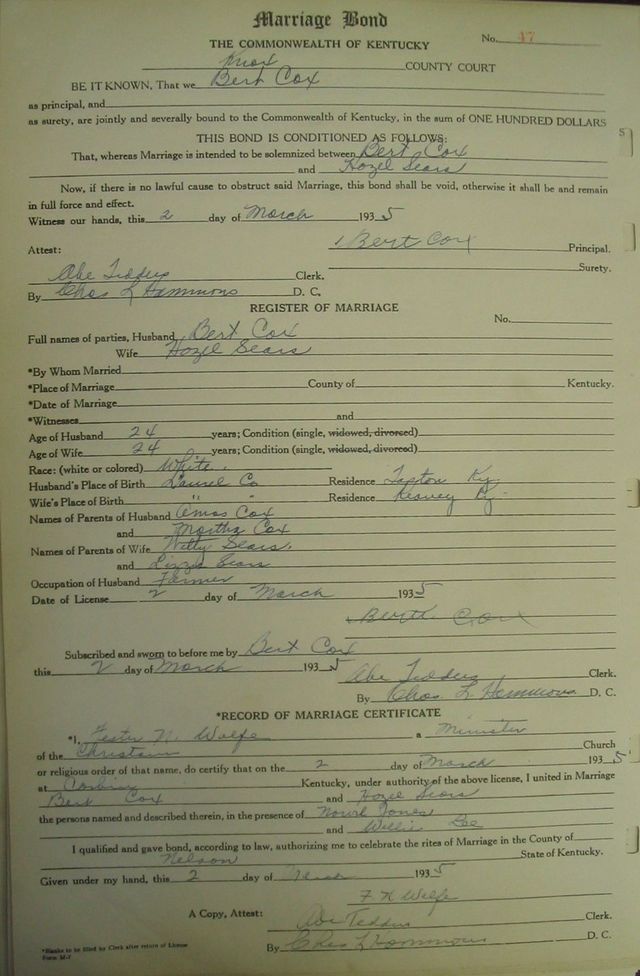 Marriage Bond
THE COMMONWEALTH OF KENTUCKY No. 47
Knox COUNTY COURT
BE IT KNOWN, That we Bert Cox
as principal, and
as surety, are jointly and severally bound to the Commonwealth of Kentucky, in the sum of ONE HUNDRED DOLLARS
THIS BOND IS CONDITIONED AS FOLLOWS:
That, whereas Marriage is intended to be solemnized between Bert Cox
and Hazel Sears
Now, if there is no lawful cause to obstruct said Marriage, this bond shall be void, otherwise it shall be and remain
in full force and effect.
Witness our hands, this 2 day of March 1935
Attest: Bert Cox Principal.
Surety.
Abe Tedders Clerk.
By Chas L Hammons D. C.
REGISTER OF MARRIAGE
No.
Full names of parties, Husband Bert Cox
Wife Hazel Sears
*By Whom Married
*Place of Marriage County of Kentucky.
*Date of Marriage
*Witnesses and
Age of Husband 24 years; Condition (single, widowed, divorced)
Age of Wife 24 years; Condition (single, widowed, divorced)
Race: (white or colored) White
Husband's Place of Birth Laurel Co Residence Ky
Wife's Place of Birth " " Residence Ky
Names of Parents of Husband Amos Cox
and Martha Cox
Names of Parents of Wife Sears
and Lizzie Sears
Occupation of Husband Farmer
Date of License 2 day of March 1935
Berth Cox
Subscribed and sworn to before me by Bert Cox
this 2 day of March 1935
Abe Tedders Clerk.
By Chas L Hammons D. C.
*RECORD OF MARRIAGE CERTIFICATE
*I, N. Wolfe a Minister
of the Christain Church
or religious order of that name, do certify that on the 2 day of March 1935
at Corbin Kentucky, under authority of the above license, I united in Marriage
Bert Cox and Hazel Sears
the persons named and described therein, in the presence of Jones
and Willie Lee
I qualified and gave bond, according to law, authorizing me to celebrate the rites of Marriage in the County of
Nelson State of Kentucky.
Given under my hand, this 2 day of March 1935
F N Wolfe
A Copy, Attest: Abe Tedders Clerk.
By Chas L Hammons D. C.
*Blanks to be filled by Clerk after return of License
Form M-7